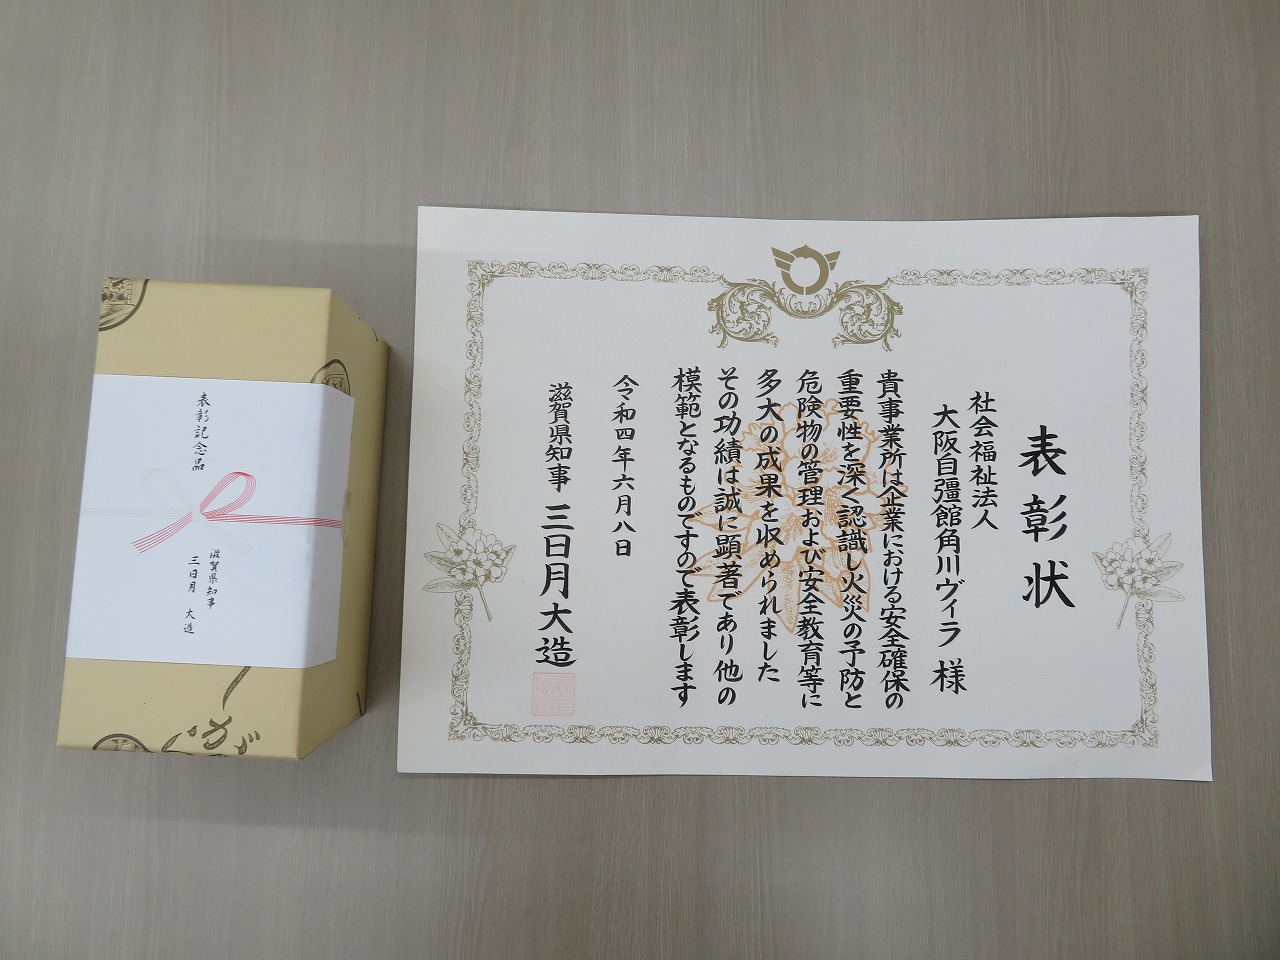 表彰状
社会福祉法人
大阪自彊館角川ヴィラ 様
貴事業所は企業における安全確保の
重要性を深く認識し火災の予防と
危険物の管理および安全教育等に
多大の成果を収められました
その功績は誠に顕著であり他の
模範となるものですので表彰します
令和四年六月八日
滋賀県知事 三日月大造
表彰記念品
滋賀県知事
三日月 大造